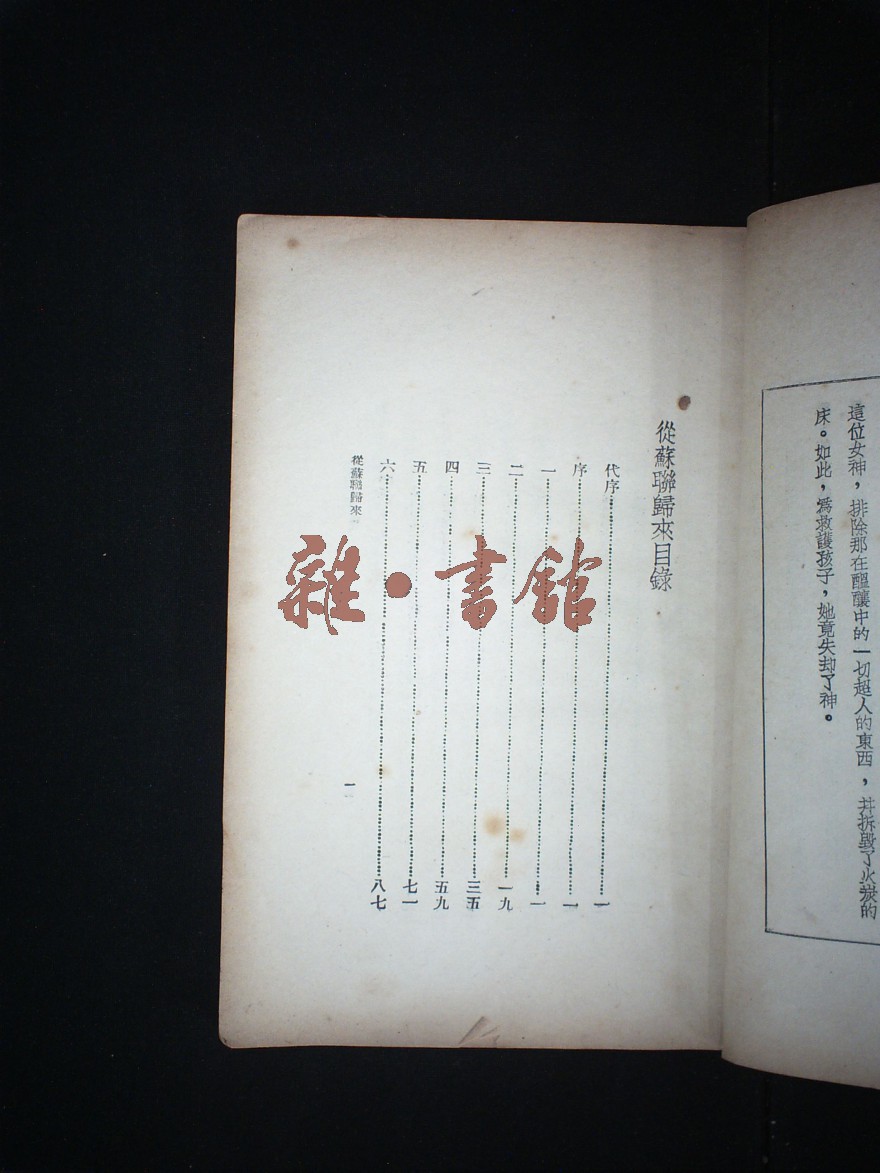 這位女神，排除那在醞釀中的一切超人的東西，幷拆毀了火炭的
床。如此，爲救護孩子，她竟失却了神。
從蘇聯歸來目錄
代序 一
序 一
一 一
二 一九
三 三五
四 五九
五 七一
六 八七
從蘇聯歸來
一
雜·書館